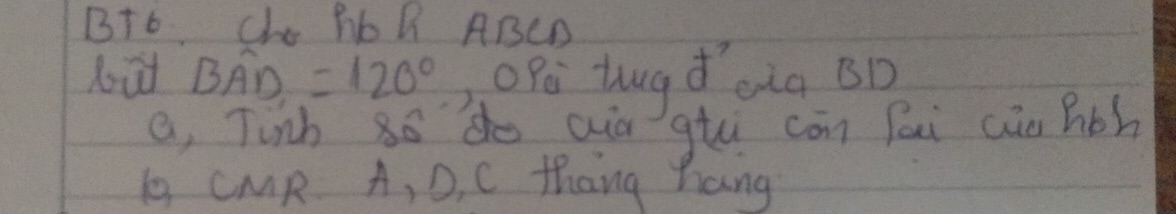 BT6. Cho hbh ABCD
biết BAD = 120°, O là trug đ' của BD
a, Tính số đo của góc còn lại của hbh
b, CMR A, D, C thẳng hàng